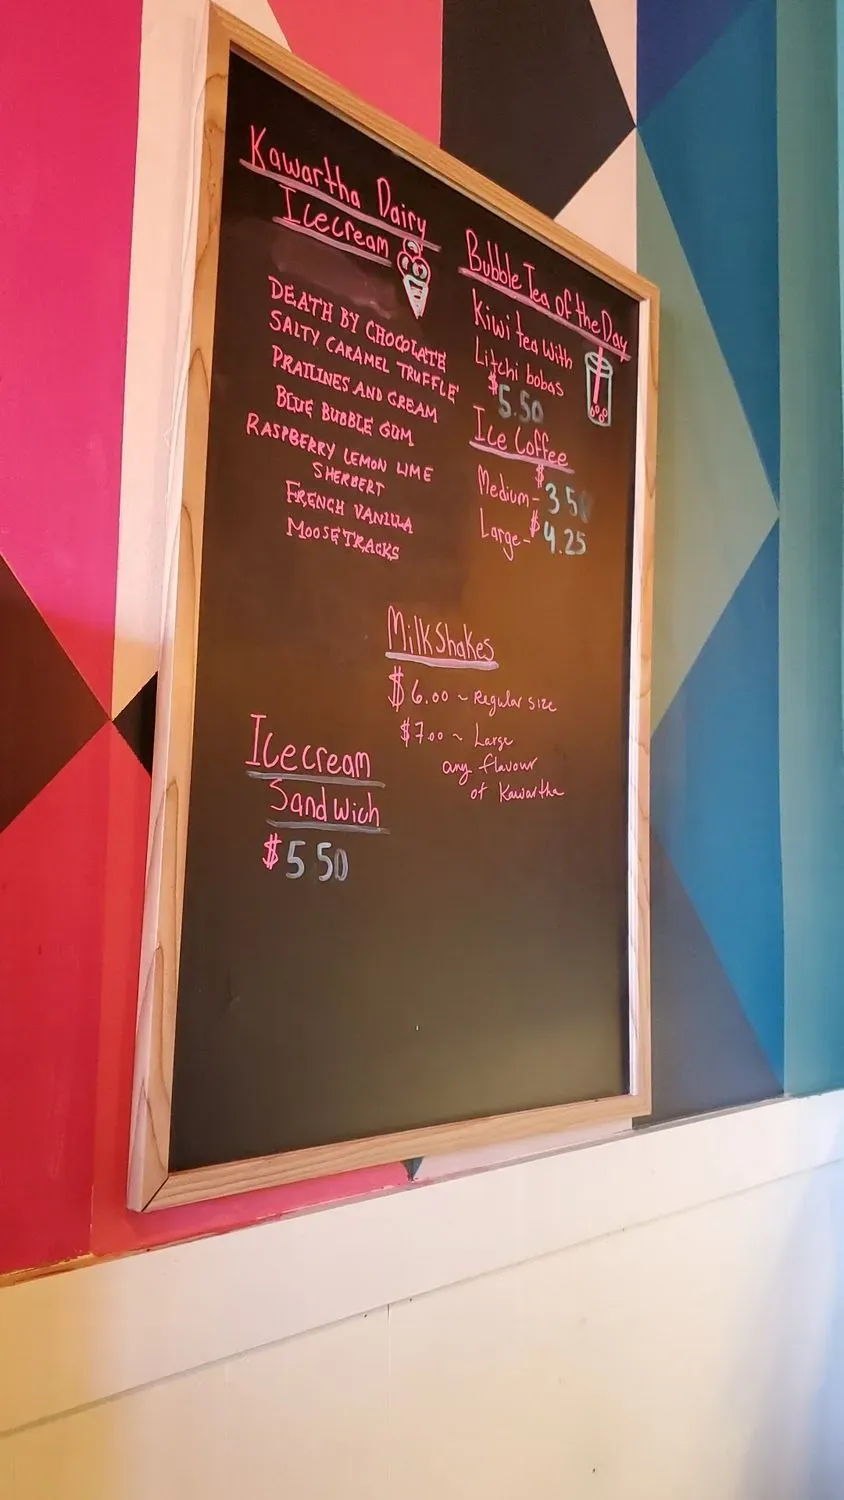 Kawartha Dairy
Icecream
DEATH BY CHOCOLATE
SALTY CARAMEL TRUFFLE
PRAILINES AND CREAM
BLUE BUBBLE GUM
RASPBERRY LEMON LIME
SHERBERT
FRENCH VANILLA
MOOSETRACKS
Bubble Tea of the Day
Kiwi tea with
Litchi bobas
$5.50
Ice Coffee
Medium - $3 50
Large - $4.25
MilkShakes
$6.00 ~ Regular size
$7.00 ~ Large
any flavour
of Kawartha
Icecream
Sandwich
$5 50